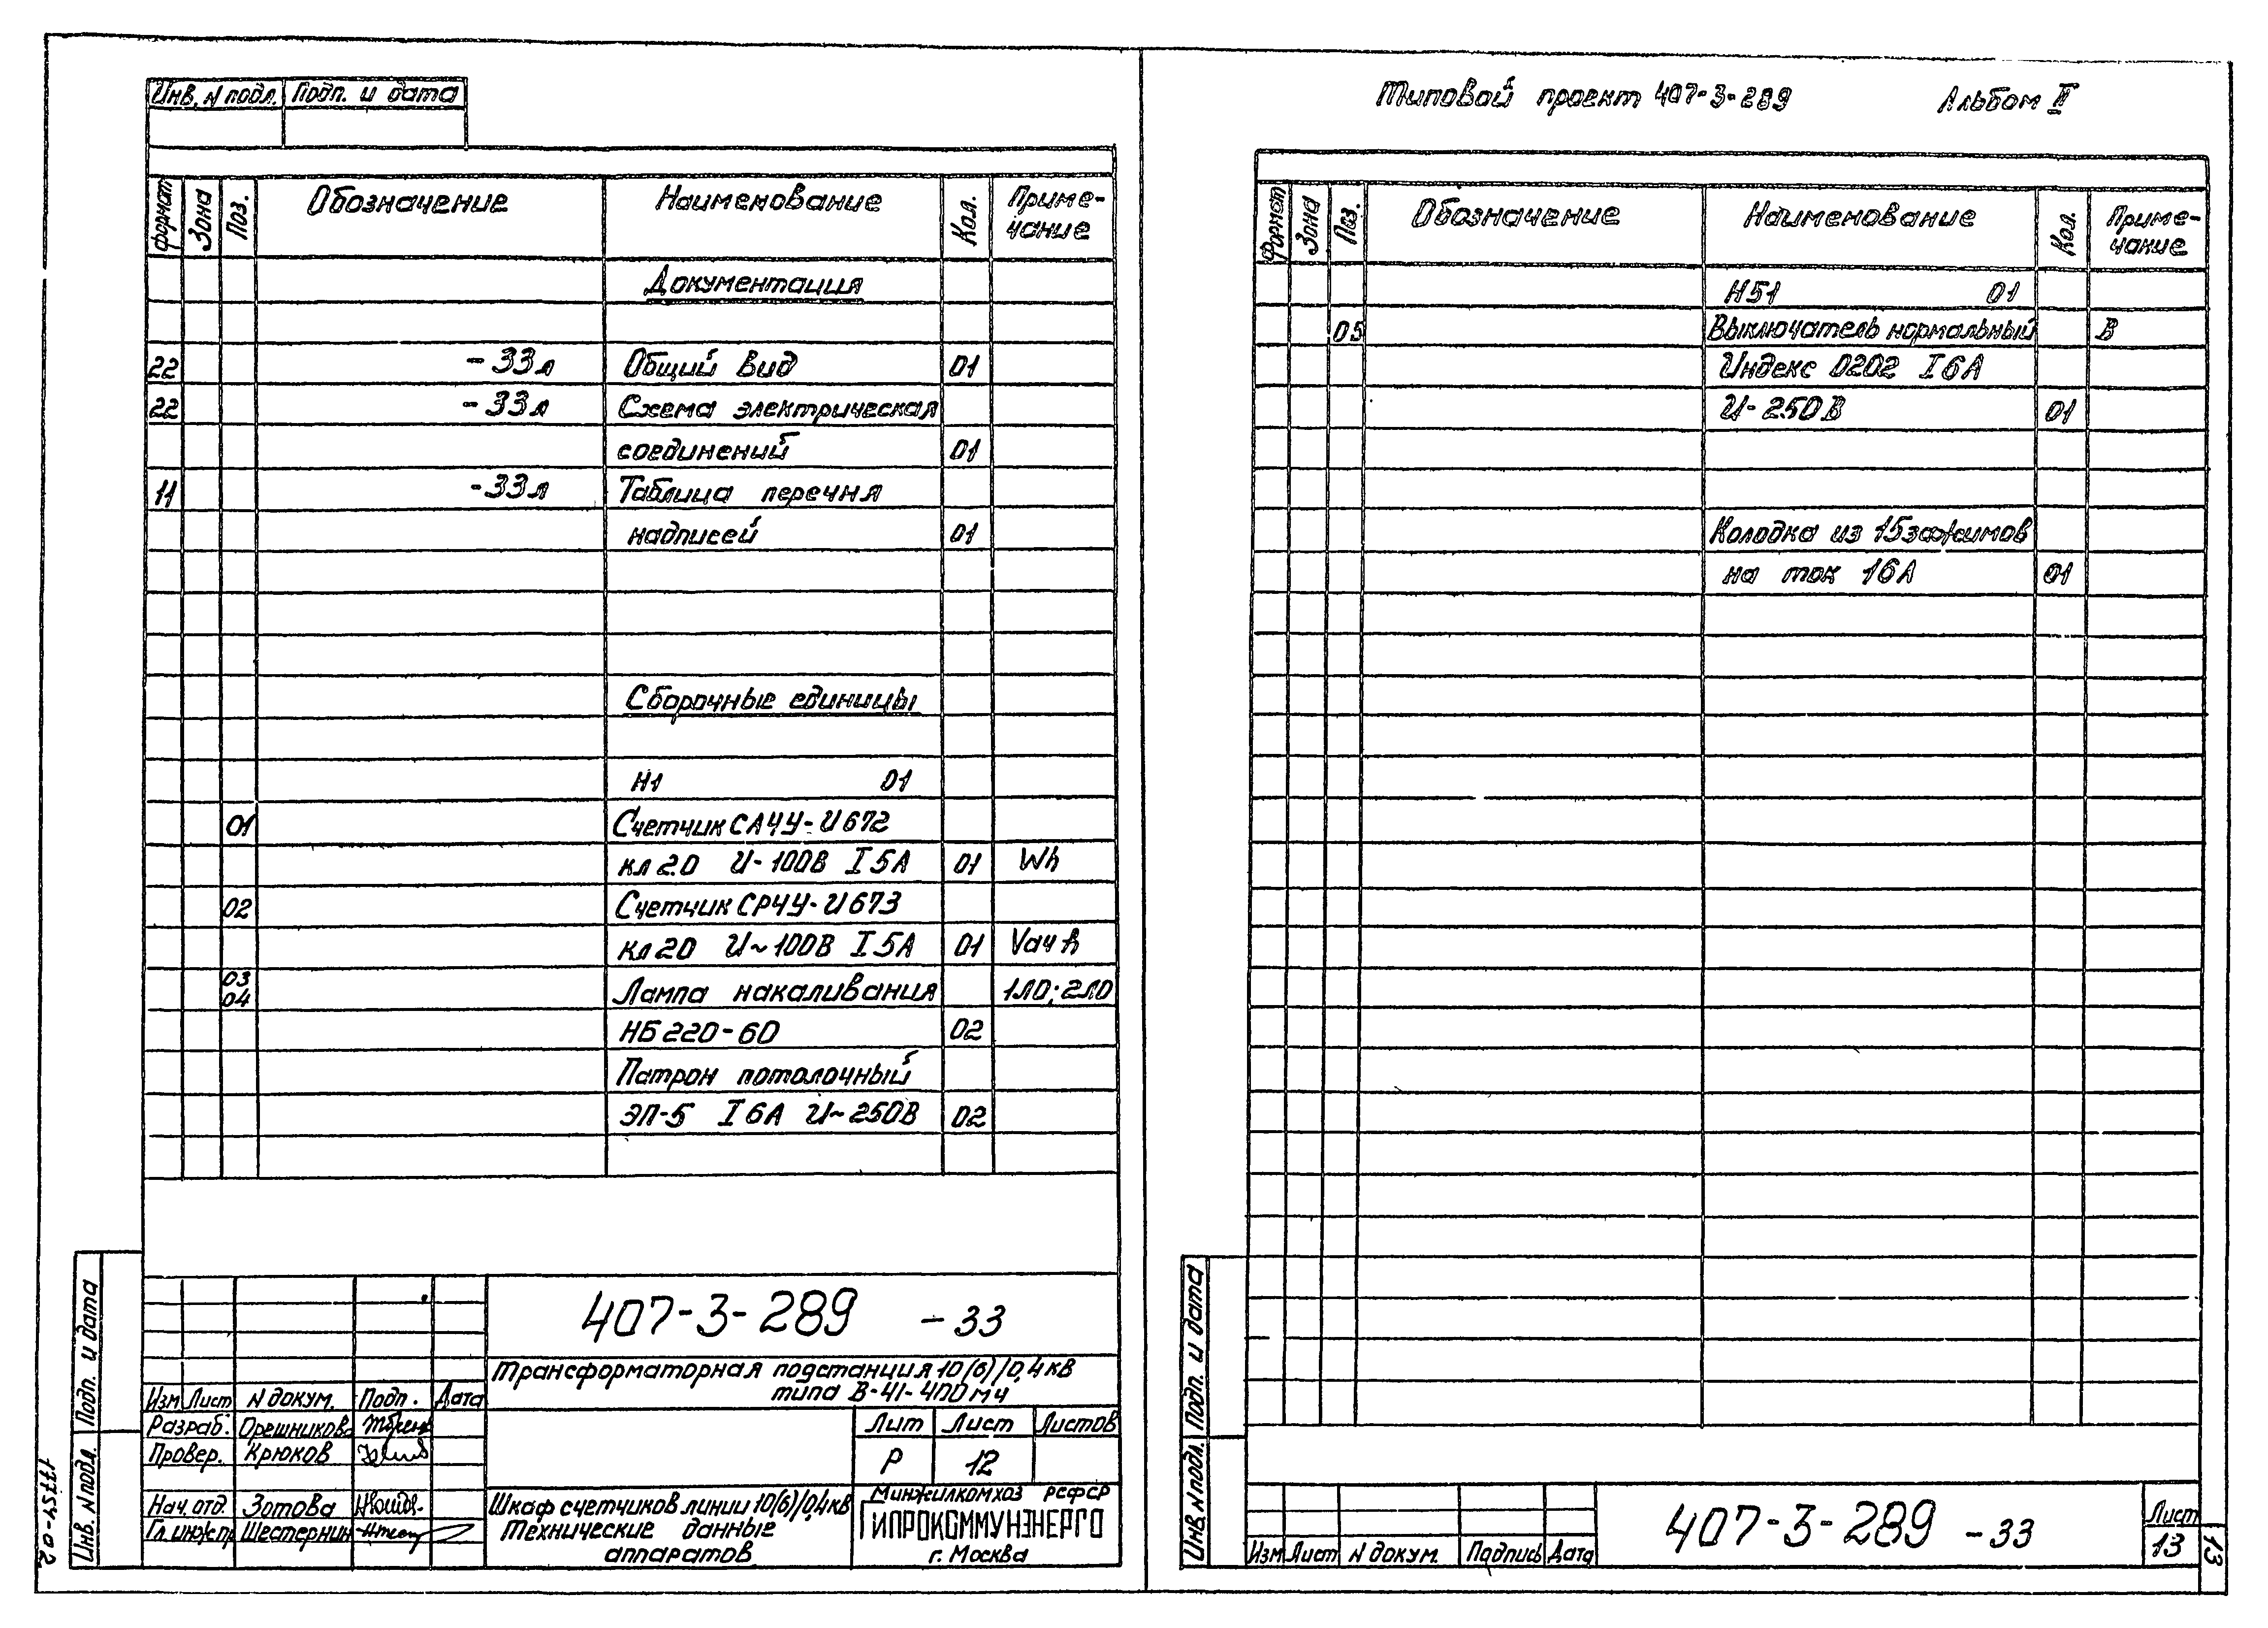 Инв. N подл. Подп. и дата
формат Зона Поз. Обозначение Наименование Кол. Приме-
чание
Документация
22 -33л Общий вид 01
22 -33л Схема электрическая
соединений 01
11 -33л Таблица перечня
надписей 01
Сборочные единицы
Н1 01
01 Счетчик СА4У-И672
кл 2.0 U-100В I 5А 01 Wh
02 Счетчик СР4У-И673
кл 2.0 U~100В I 5А 01 Vaч h
03
04 Лампа накаливания 1ЛО; 2ЛО
НБ 220-60 02
Патрон потолочный
ЭП-5 I 6А U~250В 02
407-3-289 -33
Трансформаторная подстанция 10(6)/0,4кв
типа В-41-400м4
Изм Лист N докум. Подп. Дата
Разраб. Орешникова
Провер. Крюков
Нач. отд. Зотова
Гл. инж. пр Шестернин
Лит Лист Листов
Р 12
Шкаф счетчиков линии 10(6)/0,4кв
Технические данные
аппаратов
Минжилкомхоз РСФСР
ГИПРОКОММУНЭНЕРГО
г. Москва
Инв. N подл. Подп. и дата
17754-02
Типовой проект 407-3-289 Альбом II
формат Зона Поз. Обозначение Наименование Кол. Приме-
чание
Н51 01
05 Выключатель нормальный В
Индекс 0202 I 6А
U-250В 01
Колодка из 15 зажимов
на ток 16А 01
Инв. N подл. Подп. и дата
Изм Лист N докум. Подпись Дата
407-3-289 -33
Лист
13
13